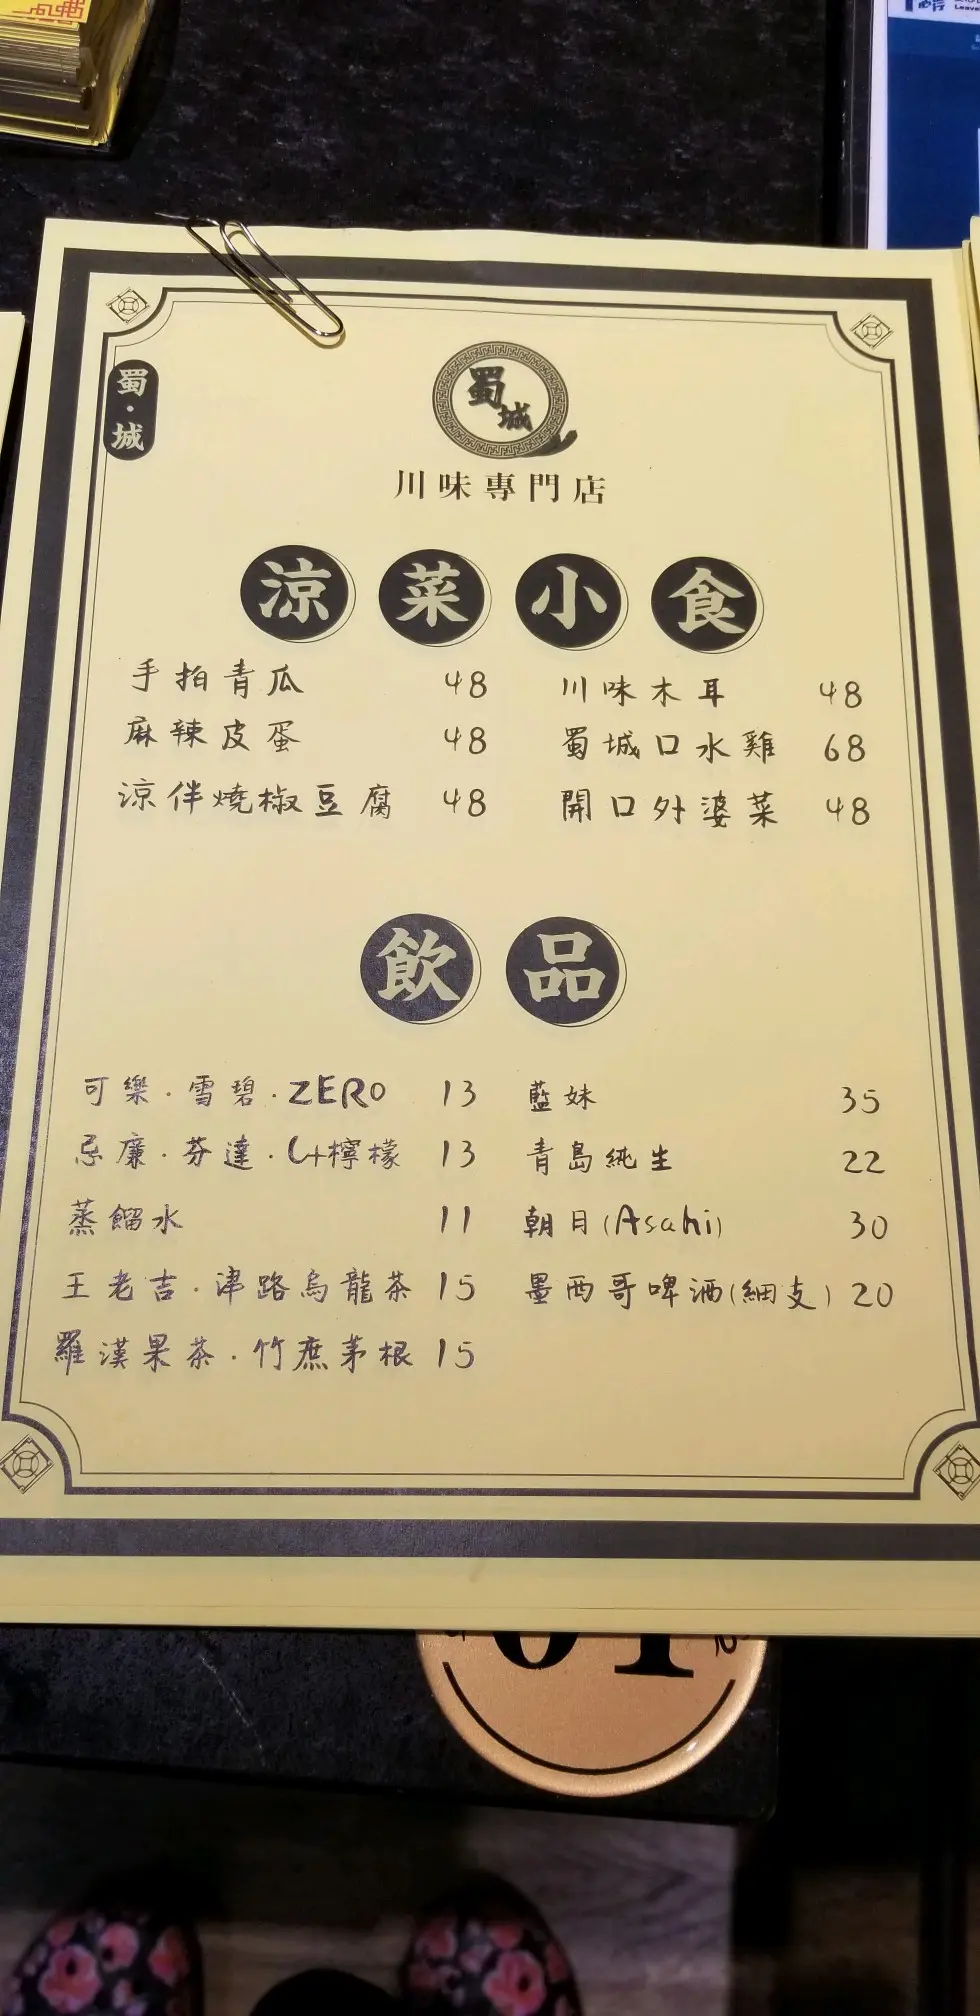 Leave
蜀·城
蜀城
川味專門店
涼菜小食
手拍青瓜 48 川味木耳 48
麻辣皮蛋 48 蜀城口水雞 68
涼伴燒椒豆腐 48 開口外婆菜 48
飲品
可樂·雪碧·ZERO 13 藍妹 35
忌廉·芬達·C+檸檬 13 青島純生 22
蒸餾水 11 朝日(Asahi) 30
王老吉·津路烏龍茶 15 墨西哥啤酒(細支) 20
羅漢果茶·竹庶茅根 15